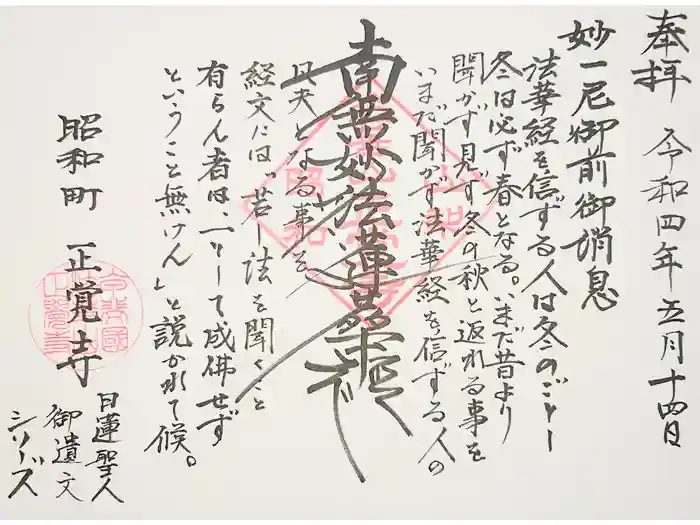 奉拝 令和四年五月十四日
妙一尼御前御消息
法華経を信ずる人は冬のごとし
冬は必ず春となる。いまだ昔より
聞かず見ず冬の秋と返れる事を
いまだ聞かず法華経を信ずる人の
南無妙法蓮華経
凡夫となる事を
経文には「若し法を聞くこと
有らん者は、一として成佛せず
ということ無けん」と説かれて候。
昭和町 正覚寺
日蓮聖人
御遺文
シリーズ